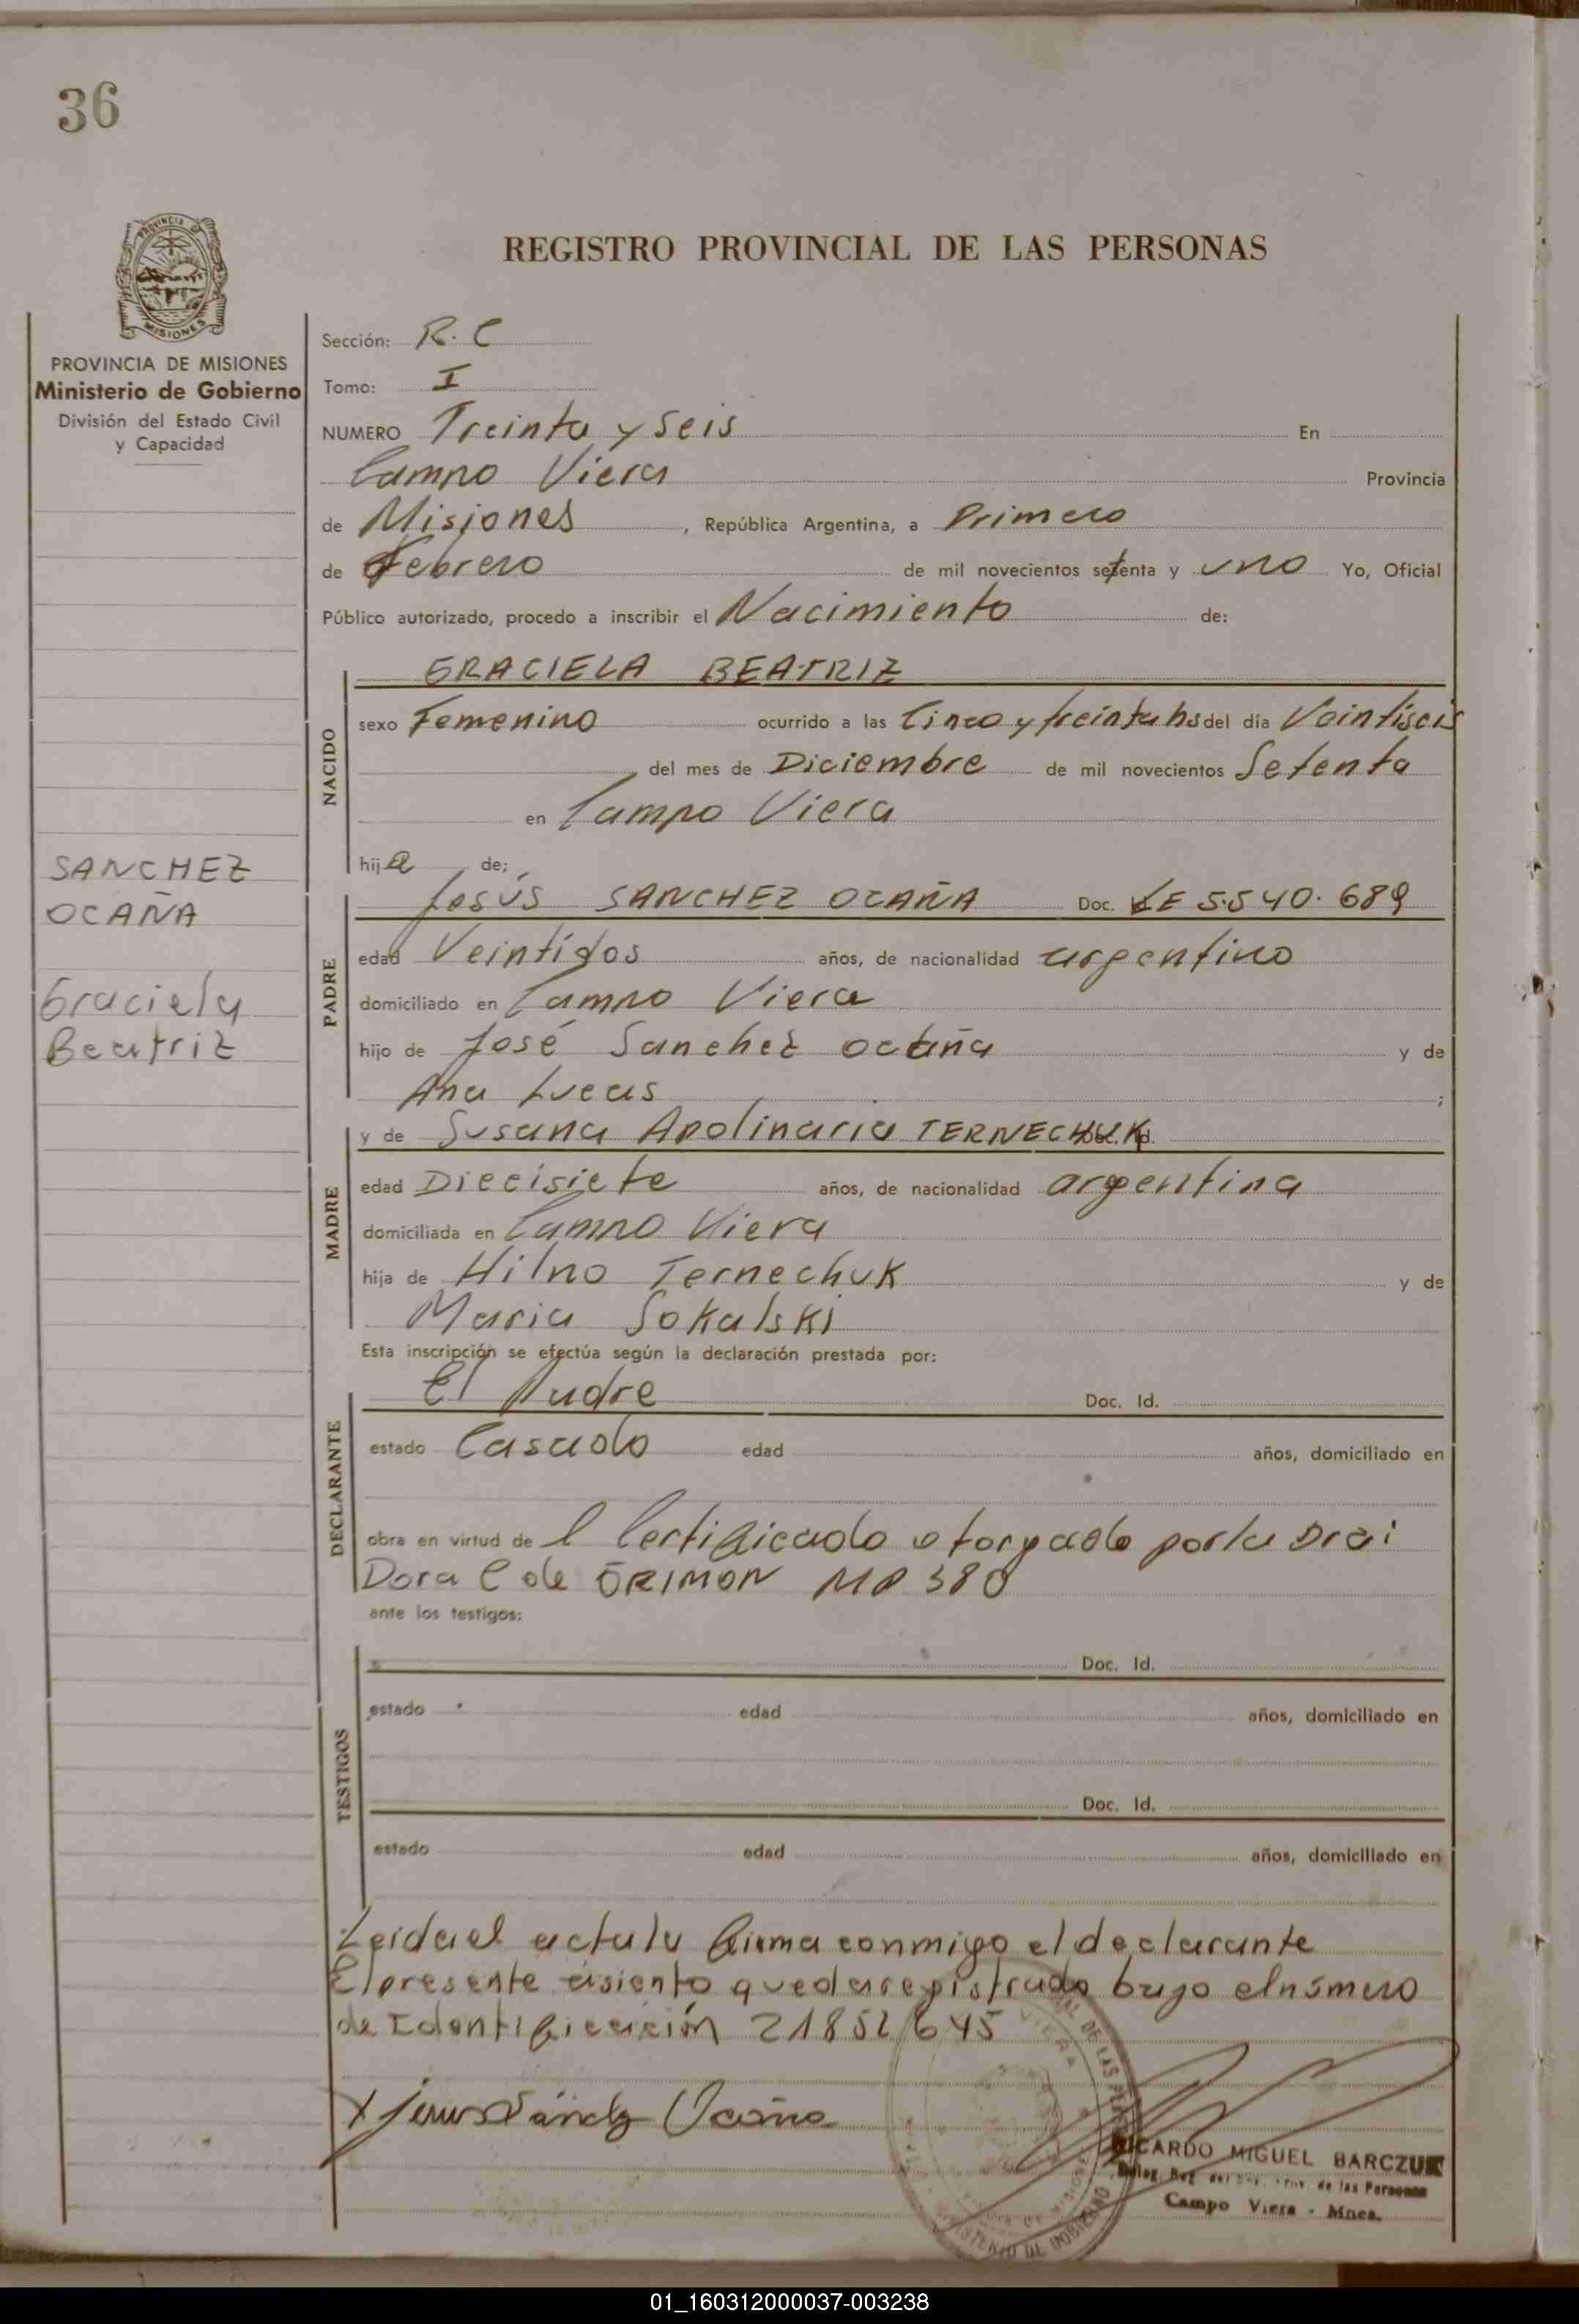 36
REGISTRO PROVINCIAL DE LAS PERSONAS
PROVINCIA
MISIONES
PROVINCIA DE MISIONES
Ministerio de Gobierno
División del Estado Civil
y Capacidad
SANCHEZ
OCAÑA
Graciela
Beatriz
Sección: R. C
Tomo: I
NUMERO Treinta y seis En
Campo Viera Provincia
de Misiones, República Argentina, a Primero
de Febrero de mil novecientos setenta y uno Yo, Oficial
Público autorizado, procedo a inscribir el Nacimiento de:
NACIDO
GRACIELA BEATRIZ
sexo Femenino ocurrido a las Cinco y treinta hs del día Veintiseis
del mes de Diciembre de mil novecientos Setenta
en Campo Viera
hija de;
PADRE
Jesús SANCHEZ OCAÑA Doc. LE 5.540.689
edad Veintidos años, de nacionalidad argentino
domiciliado en Campo Viera
hijo de José Sanchez ocaña y de
Ana Lucas ;
MADRE
y de Susana Apolinaria TERNECHUK Doc. Id.
edad Diecisiete años, de nacionalidad argentina
domiciliada en Campo Viera
hija de Hilno Ternechuk y de
Maria Sokalski
Esta inscripción se efectúa según la declaración prestada por:
DECLARANTE
El Padre Doc. Id.
estado Casado edad años, domiciliado en
obra en virtud de l Certificado otorgado por la Dra:
Dora C de GRIMON MP 380
ante los testigos:
TESTIGOS
Doc. Id.
estado edad años, domiciliado en
Doc. Id.
estado edad años, domiciliado en
Leida el acta la firma conmigo el declarante
El presente asiento queda registrado bajo el número
de Identificación 21852645
x Jesus Sánchz Ocaña
VIERA
MINISTERIO DE GOBIERNO
RICARDO MIGUEL BARCZUK
Deleg. Reg. de las Personas
Campo Viera - Mnes.
01_160312000037-003238